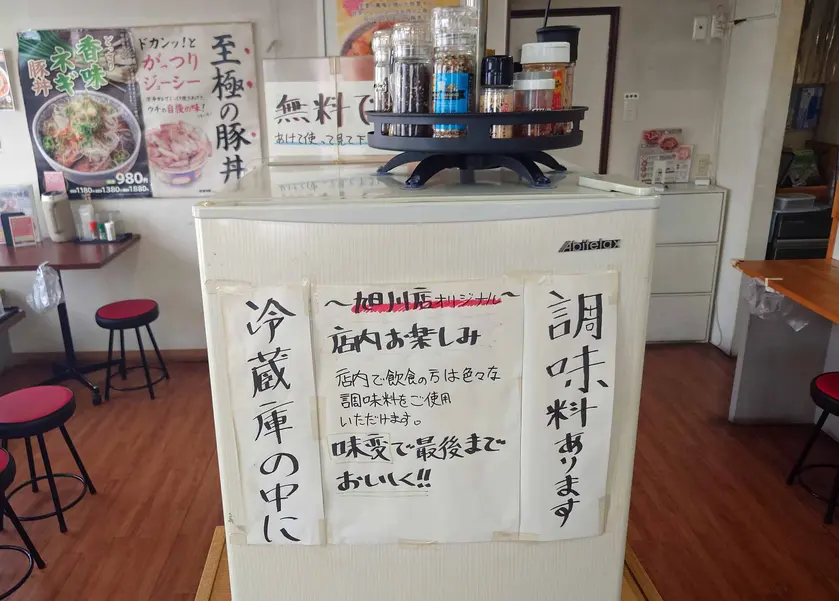 香味
ネギ
豚丼
980円
ドカンッ!と
がっつり
ジューシー
ウチの自慢の味!
至極の豚丼
無料で
あけて使って見て下
Abitelax
冷蔵庫の中に
～旭川店オリジナル～
店内お楽しみ
店内で飲食の方は色々な
調味料をご使用
いただけます。
味変で最後まで
おいしく!!
調味料あります